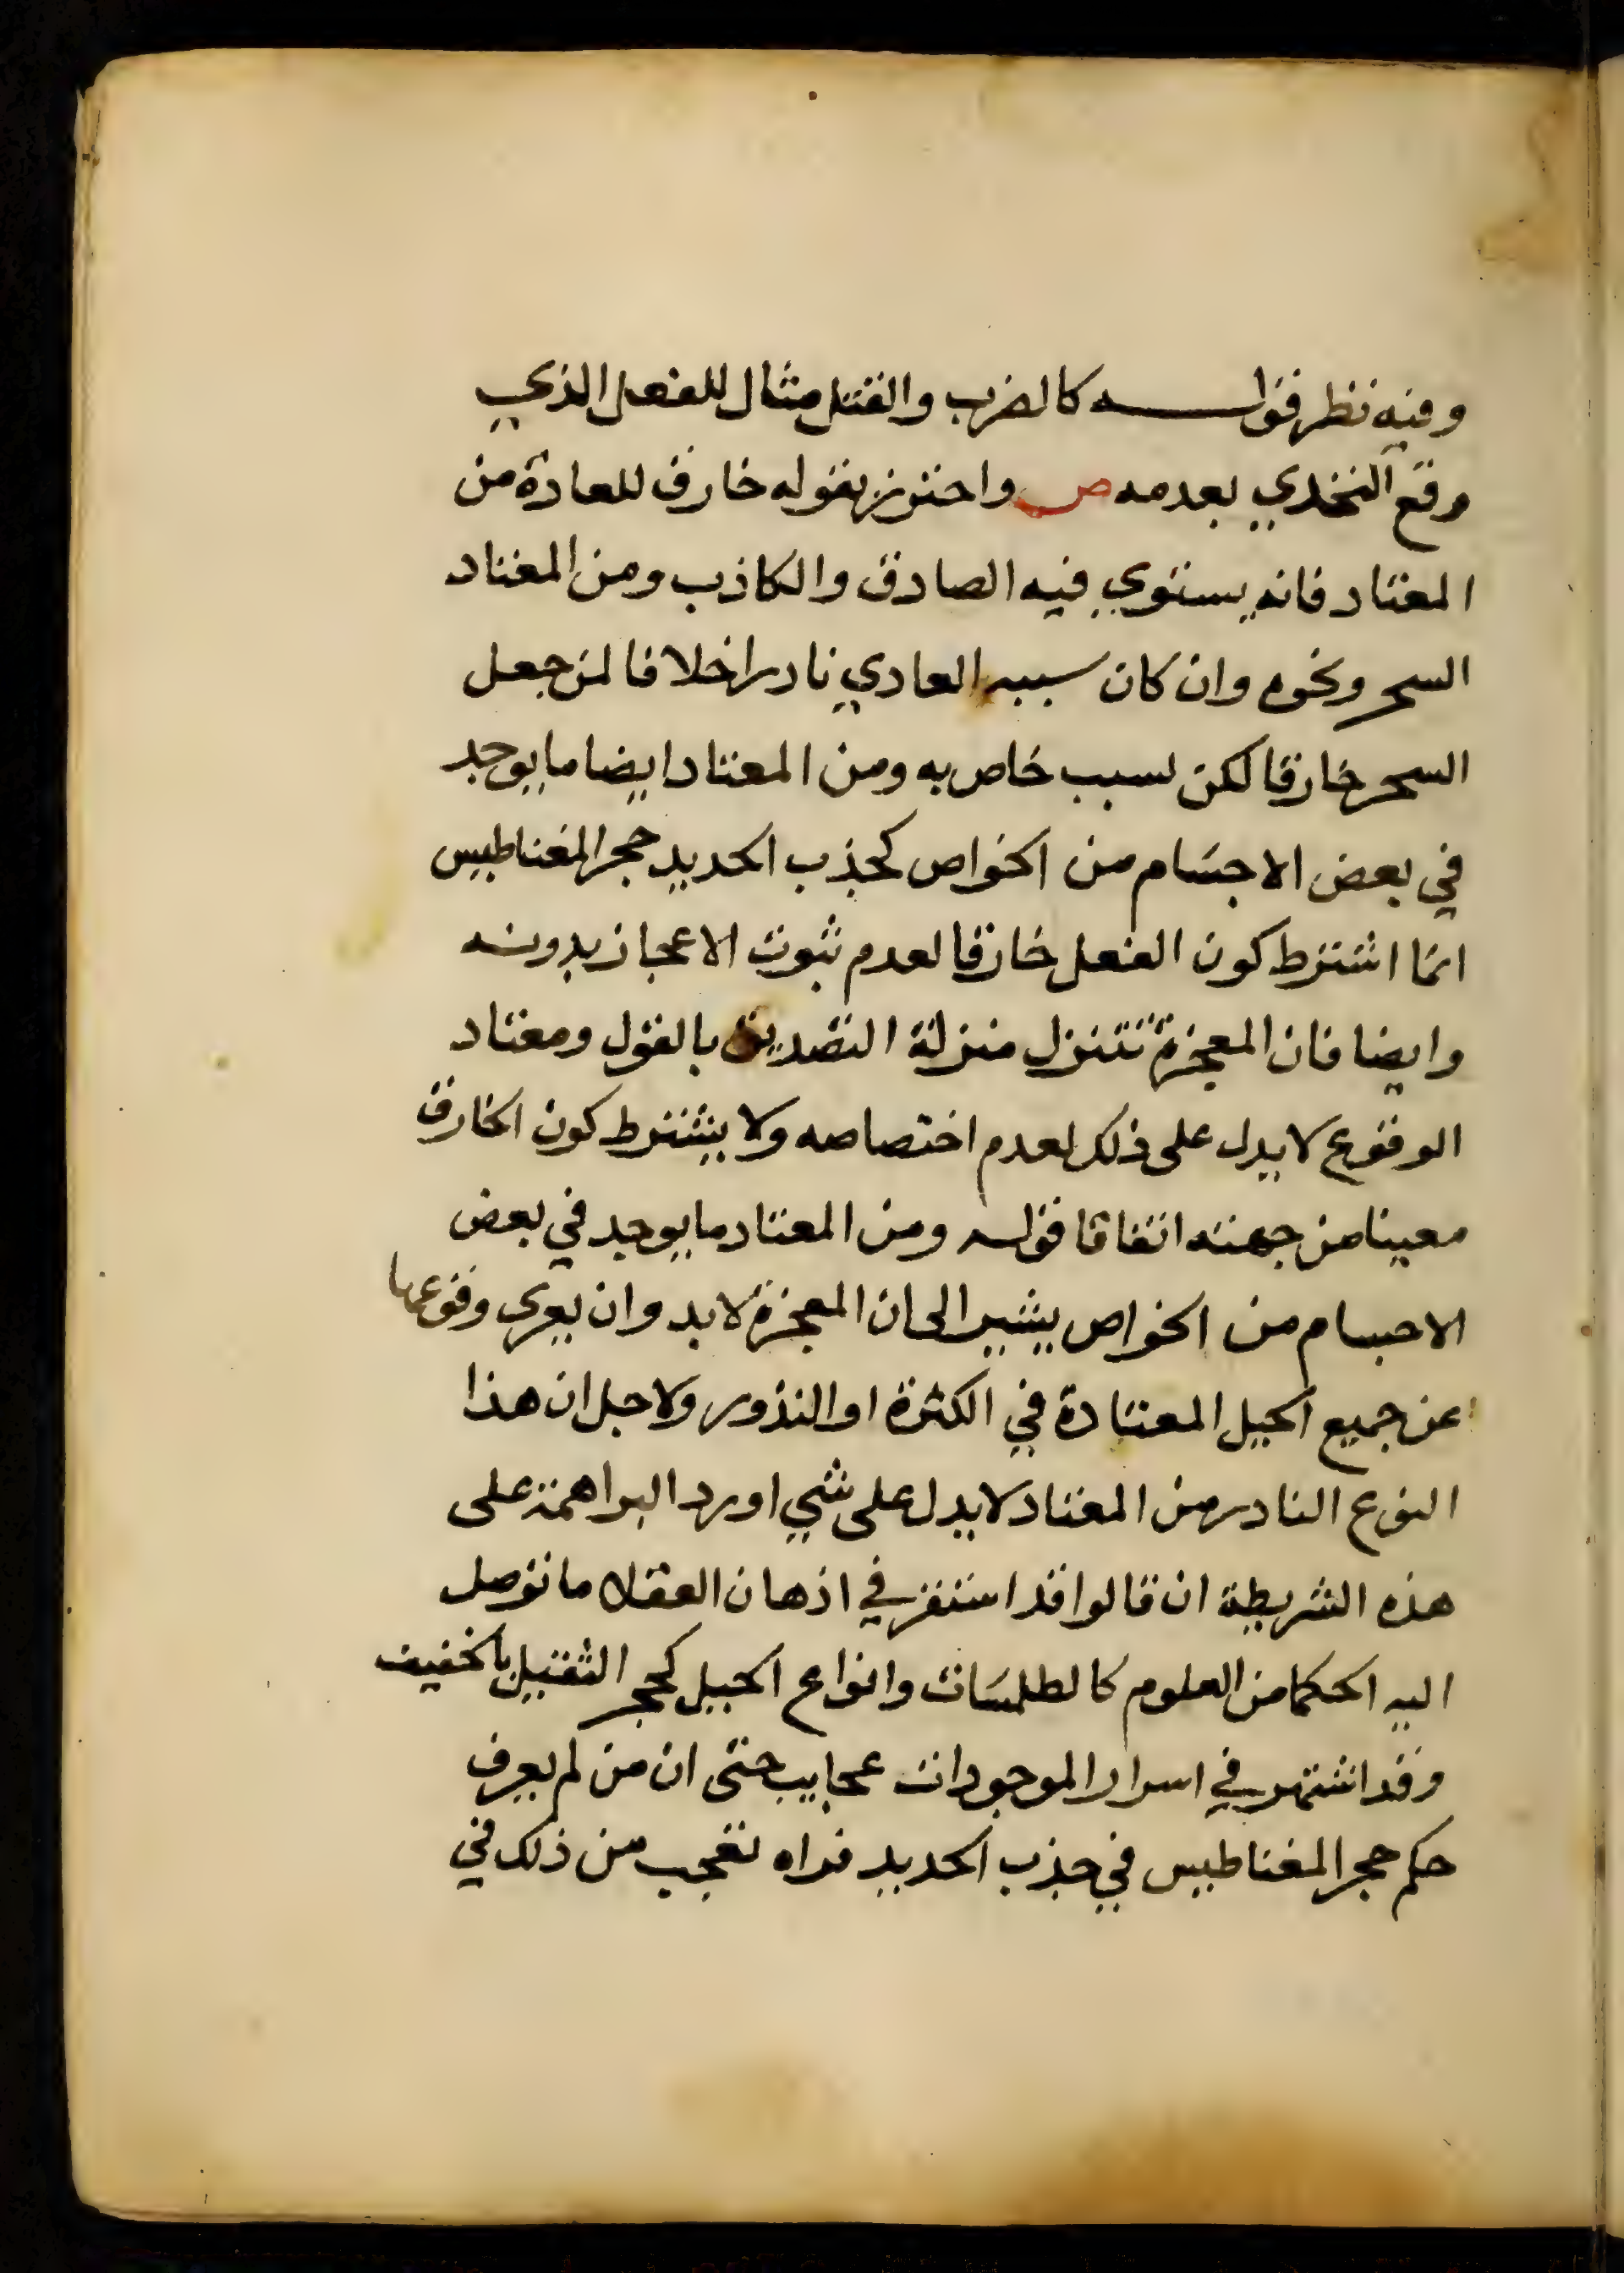 وفيه نظر قولــــه كالضرب والقتل مثال للفعل الذي
وقع التحدي بعدمه ص واحترز بقوله خارق للعادة من
المعتاد فانه يستوي فيه الصادق والكاذب ومن المعتاد
السحر ونحوه وان كان سببه العادي نادرا خلافا لمن جعل
السحر خارقا لكن لسبب خاص به ومن المعتاد ايضا ما يوجد
في بعض الاجسام من الخواص كجذب الحديد حجر المغناطيس
انما اشترط كون الفعل خارقا لعدم ثبوت الاعجاز بدونه
وايضا فان المعجزة تتنزل منزلة التصديق بالقول ومعتاد
الوقوع لا يدل على ذلك لعدم اختصاصه ولا يشترط كون الخارق
معينا من جهته اتفاقا قوله ومن المعتاد ما يوجد في بعض
الاجسام من الخواص يشير الى ان المعجزة لا بد وان يعرى وقوعها
عن جميع الحيل المعتادة في الكثرة او النذور ولاجل ان هذا
النوع النادر من المعتاد لا يدل على شي اورد البراهمة على
هذه الشريطة ان قالوا قد استقر في اذهان العقلا ما توصل
اليه الحكما من العلوم كالطلسمات وانواع الحيل كجر الثقيل بالخفيف
وقد اشتهر في اسرار الموجودات عجايب حتى ان من لم يعرف
حكم حجر المغناطيس في جذب الحديد فراه تعجب من ذلك في